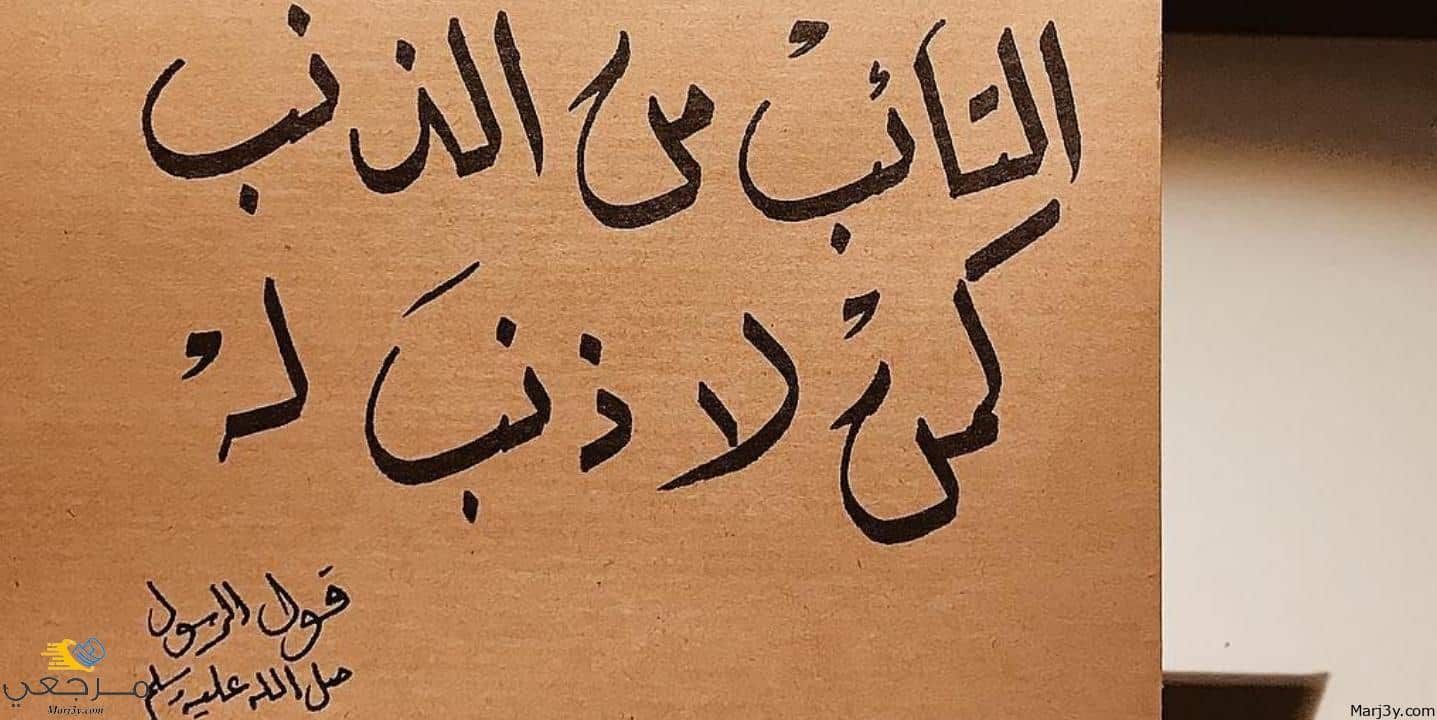 التائبُ من الذنب
كمن لا ذنبَ لهُ
قول الرسول
صل الله عليه وسلم
مرجعي
Marj3y.com
Marj3y.com